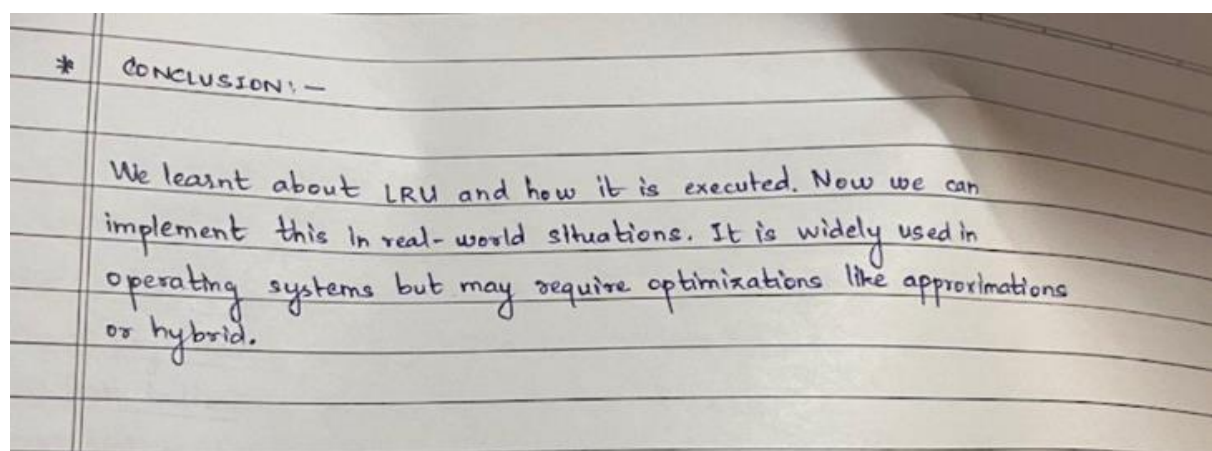 * CONCLUSION:-
We learnt about LRU and how it is executed. Now we can
implement this in real-world situations. It is widely used in
operating systems but may require optimizations like approximations
or hybrid.